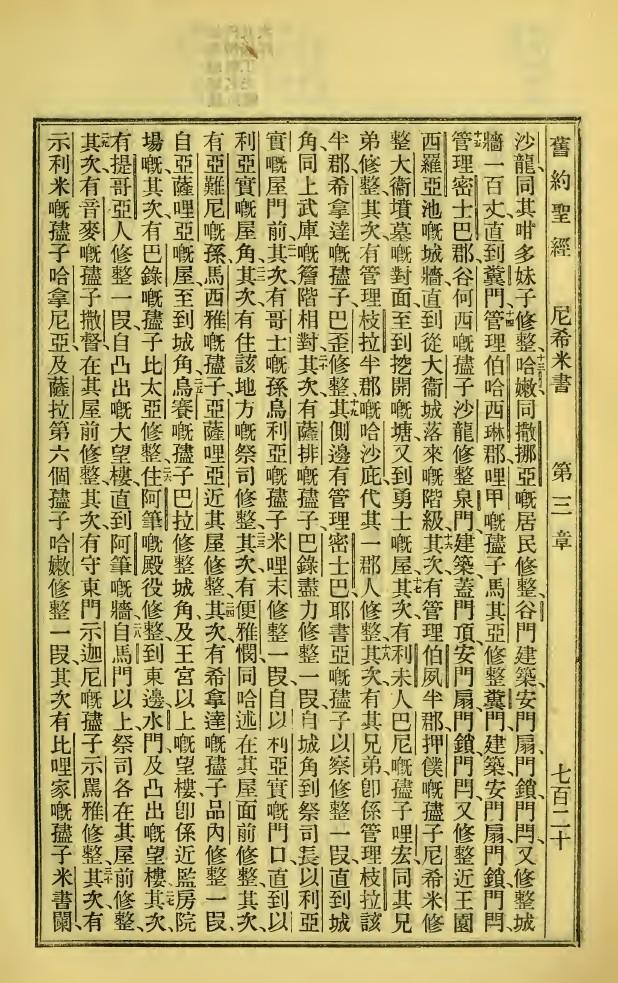 舊約聖經 尼希米書 第三章 七百二十
沙龍同其咁多妹子修整、十三哈嫩同撒挪亞嘅居民修整谷門建築安門扇門鎖門閂、又修整城
牆一百丈直到糞門、十四管理伯哈西琳郡哩甲嘅孻子馬其亞修整糞門、建築安門扇門鎖門閂、
十五管理密士巴郡谷何西嘅孻子沙龍修整泉門建築蓋門頂安門扇門鎖門閂、又修整近王園
西羅亞池嘅城牆直到從大衞城落來嘅階級、十六其次有管理伯夙半郡押僕嘅孻子尼希米修
整大衞墳墓嘅對面至到挖開嘅塘又到勇士嘅屋、十七其次有利未人巴尼嘅孻子哩宏同其兄
弟修整、其次有管理枝拉半郡嘅哈沙庇代其一郡人修整、十八其次有其兄弟卽係管理枝拉該
半郡希拿達嘅孻子巴歪修整、十九其側邊有管理密士巴耶書亞嘅孻子以察修整一叚直到城
角同上武庫嘅簷階相對、二十其次有薩排嘅孻子巴錄盡力修整一叚自城角到祭司長以利亞
實嘅屋門前、二一其次有哥士嘅孫烏利亞嘅孻子米哩末修整一叚自以利亞實嘅門口直到以
利亞實嘅屋角、二二其次有住該地方嘅祭司修整、二三其次有便雅憫同哈述在其屋面前修整、其次
有亞難尼嘅孫馬西雅嘅孻子亞薩哩亞近其屋修整、二四其次有希拿達嘅孻子品內修整一叚、
自亞薩哩亞嘅屋至到城角、二五烏賽嘅孻子巴拉修整城角及王宮以上嘅望樓卽係近監房院
場嘅、其次有巴錄嘅孻子比太亞修整、二六住阿筆嘅殿役修整到東邊水門及凸出嘅望樓、二七其次
有提哥亞人修整一叚自凸出嘅大望樓直到阿筆嘅牆、二八自馬門以上祭司各在其屋前修整、
二九其次有音麥嘅孻子撒督在其屋前修整、其次有守東門示迦尼嘅孻子示罵雅修整、三十其次有
示利米嘅孻子哈拿尼亞、及薩拉第六個孻子哈嫩修整一叚、其次有比哩家嘅孻子米書闌、